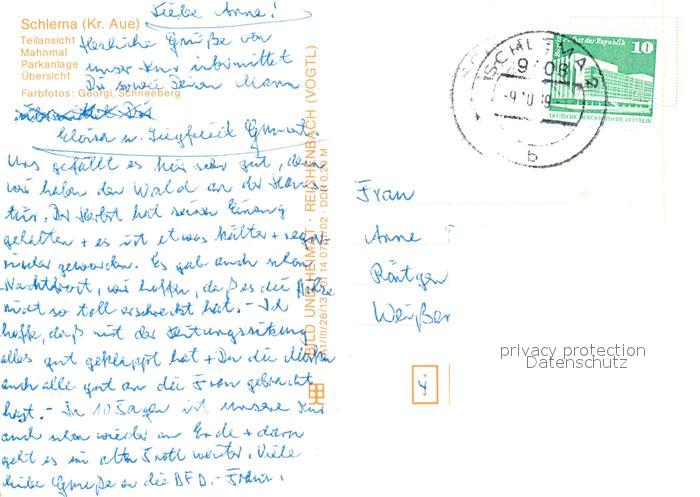 Liebe Anne!
Schlema (Kr. Aue)
Teilansicht
Mahnmal
Parkanlage
Übersicht
Farbfotos: Georgi, Schneeberg
Herzliche Grüße von
unser Kur übermittelt
Dir sowie Deinen Mann
u. Siegfried
Uns gefällt es hier sehr gut, denn
wir haben den Wald an der Haus-
tür. Der Herbst hat seinen Einzug
gehalten + es ist etwas kälter + regne-
rischer geworden. Es gab auch schon
Nachtfrost, wir hoffen, daß es die
nicht so toll erwischt hat. - Ich
hoffe, daß mit der Leitungssitzung
alles gut geklappt hat + Du die
auch alle gut an die Frau gebracht
hast. - In 10 Tagen ist unsere Kur
auch schon wieder zu Ende + dann
geht es im alten Trott weiter. Viele
liebe Grüße an die DFD.-Frauen.
BILD UND HEIMAT · REICHENBACH (VOGTL)
DDR 0,20 M
Palast der Republik
10
DEUTSCHE DEMOKRATISCHE REPUBLIK
SCHLEMA 2
9408
b
Frau
Anne
Röntgen
Weißer
privacy protection
Datenschutz